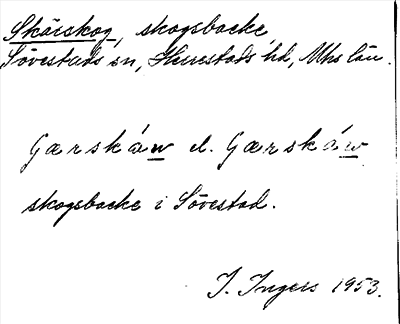 Skärskog, skogsbacke
Sövestads sn, Herrestads hd, Mhs län.
Gærskáw el. Gærskáw
skogsbacke i Sövestad.
I. Ingers 1953.